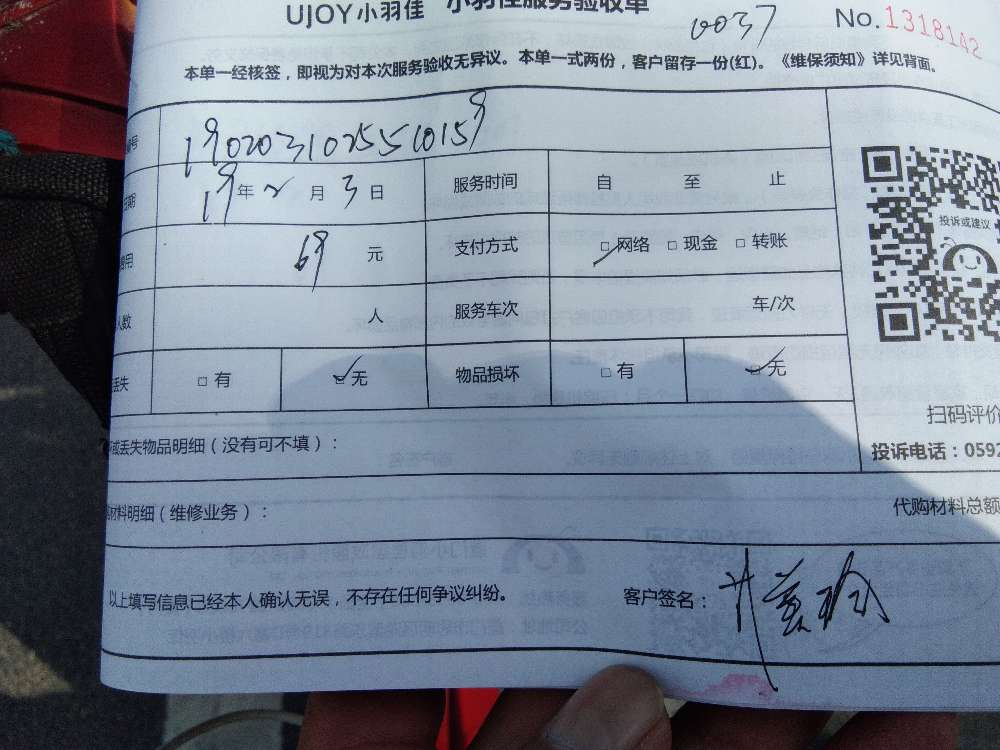 UJOY小羽佳 小羽佳服务验收单
0037
No.1318142
本单一经核签，即视为对本次服务验收无异议。本单一式两份，客户留存一份(红)。《维保须知》详见背面。
编号 1902031025510159
日期 19年2月3日 服务时间 自 至 止
费用 69 元 支付方式 □网络 □现金 □转账
人数 人 服务车次 车/次
丢失 □有 □无 物品损坏 □有 □无
投诉或建议
扫码评价
或丢失物品明细（没有可不填）：
投诉电话：0592
材料明细（维修业务）：
代购材料总额
以上填写信息已经本人确认无误，不存在任何争议纠纷。 客户签名：